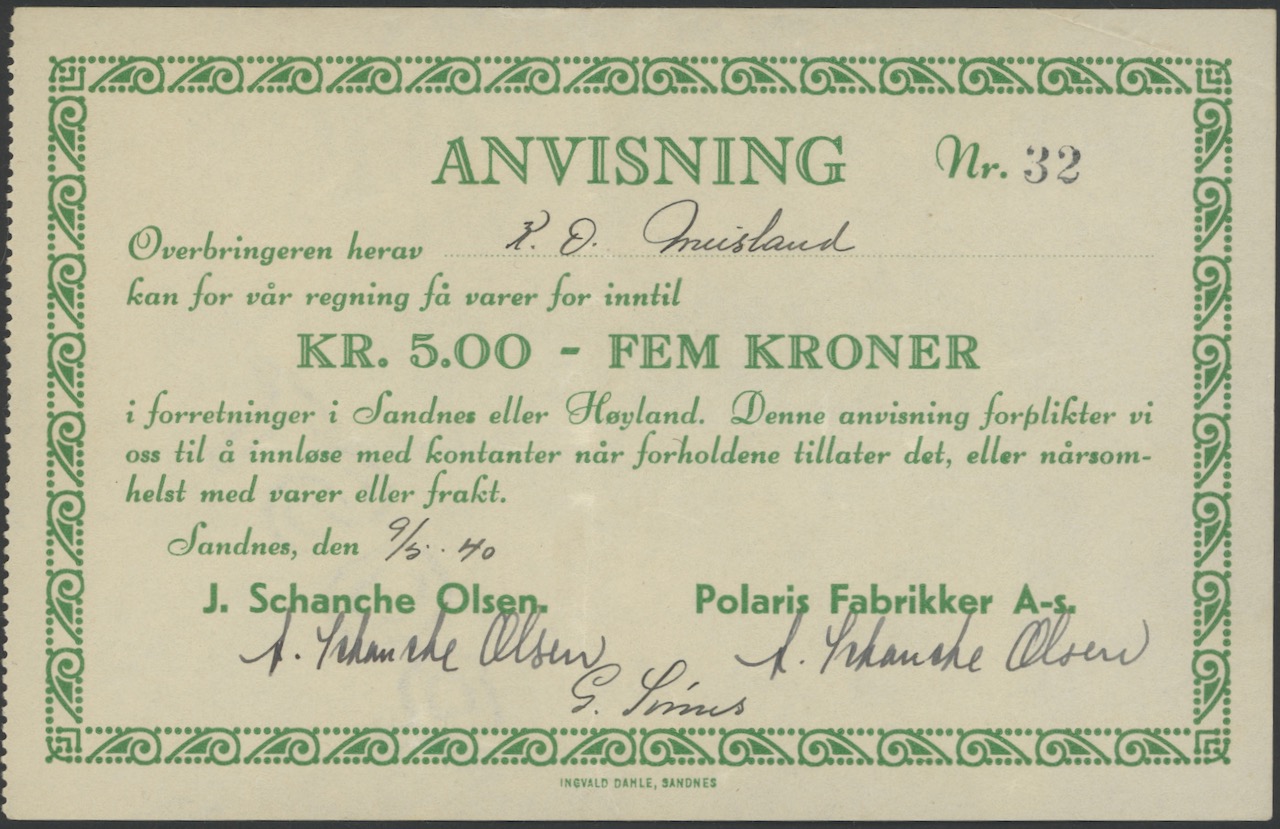 ANVISNING Nr. 32
Overbringeren herav K. O. Meisland
kan for vår regning få varer for inntil
KR. 5.00 - FEM KRONER
i forretninger i Sandnes eller Høyland. Denne anvisning forplikter vi
oss til å innløse med kontanter når forholdene tillater det, eller nårsom-
helst med varer eller frakt.
Sandnes, den 9/5. 40
J. Schanche Olsen. Polaris Fabrikker A-s.
A. Schanche Olsen A. Schanche Olsen
G.
INGVALD DAHLE, SANDNES